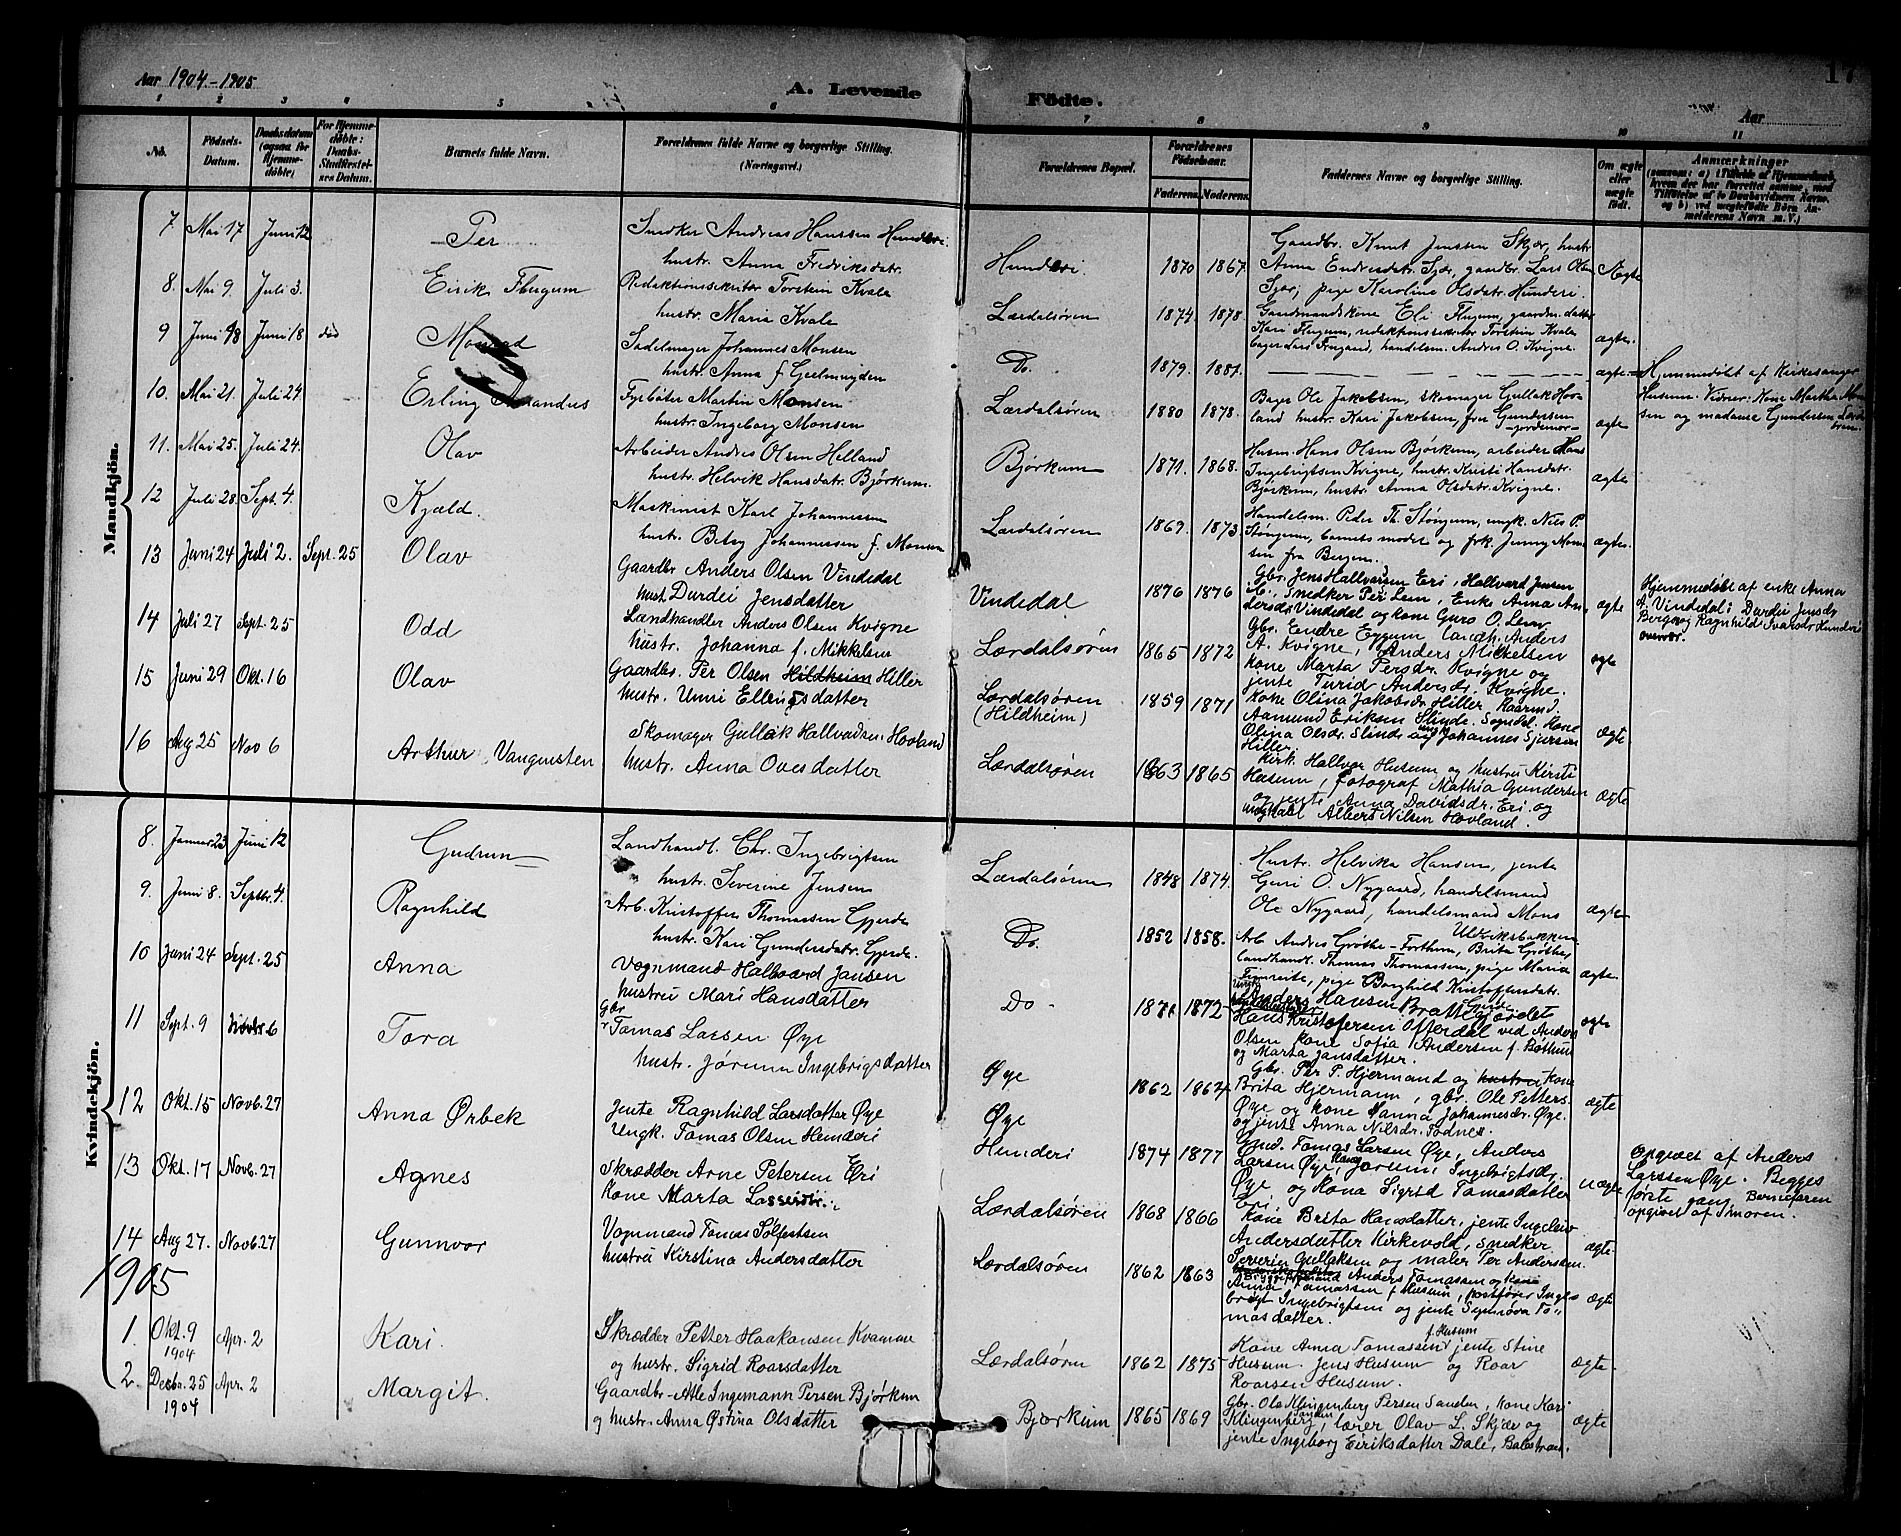 Aar 1904-1905
A. Levende Födte.
17
Aar
1 2 3 4 5 6 7 8 9 10 11
No.
Födsels-Datum.
Daabsdatum (ogsaa for Hjemmedöbte)
For Hjemmedöbte: Daabs-Stadfestelses Datum.
Barnets fulde Navn.
Forældrenes fulde Navne og borgerlige Stilling. (Næringsvei.)
Forældrenes Bopæl.
Forældrenes Födselsaar.
Faderens. Moderens.
Faddernes Navne og borgerlige Stilling.
Om ægte eller uægte födt.
Anmærkninger
Mandkjön.
7 Mai 17 Juni 12 Per
Snedker Andreas Hanssen Hunderi
hustr. Anna Fredriksdatr.
Hunderi 1870 1867.
Gaardbr. Knut Jenssen Skjær, hustr
Anna Endresdatr. Sjær, gaardbr. Lars Olsen
Sjær, pige Karoline Olsdatr. Hunderi.
Ægte
8. Mai 9. Juli 3. Eirik Flugum
Redaktionssekritær Torstein Kvale
hustr. Maria Kvale
Lærdalsören 1874. 1878.
Gaardmandskone Eli Flugum, gaardm. datter
Kari Flugum, redaktionssekritær Torstein Kvale
bager Lars Frugaard, handelsm. Andres O. Kvigne.
ægte.
9 Juni 18 Juni 18 död Monrad
Sadelmager Johannes Monsen
hustr. Anna f. Geelmuyden
Do. 1879. 1881.
ægte
Hjemmedöbt af Kirkesanger
Husum. Vidner: Kone Martha Monsen og madame Gundersen Lærdalsören.
10. Mai 21. Juli 24 Erling Amandus
Fyrbøter Martin Monsen
hustr. Ingeborg Monsen
Lærdalsören 1880 1878.
Bager Ole Jakobsen, skomager Gullak Hovland
hustr. Kari Jakobsen, frue Gundersen
- jordemor -
ægte
11. Mai 25. Juli 24. Olav
Arbeider Andres Olsen Helland
hustr. Helvik Hansdatr. Bjørkum.
Bjørkum 1871. 1868.
Husm. Hans Olsen Bjørkum, arbeider Hans
Ingebrigtsen Kvigne, hustr. Kristi Hansdatr.
Bjørkum, hustr. Anna Olsdatr. Kvigne.
ægte
12 Juli 28. Sept. 4. Kjæld.
Maskinist Karl Johannessen
hustr. Betsy Johannessen f. Monsen
Lærdalsören 1869. 1873.
Handelsm. Peder Th. Stöngum, ungk. Nils P.
Stöngum, barnets moder og frk. Jenny Monsen
fra Bergen.
ægte.
13 Juni 24 Juli 2. Sept. 25 Olav
Gaardbr Anders Olsen Vindedal
hust. Durdei Jensdatter
Vindedal 1876 1876
Gbr. Jens Hallvarsen Eri, Hallvard Jensen
ib., Snedker Per Lem, Enke Anna Andersdr Vindedal og kone Guro O. Lem.
ægte
Hjemmedøbt af enke Anna
A. Vindedal; Durdei Jensdr
Berge og Ragnhild Ivarsdr Hunderi
overvær.
14 Juli 27 Sept. 25 Odd
Landhandler Anders Olsen Kvigne
hustr. Johanna f. Mikkelsen
Lærdalsören 1865 1872
Gbr. Endre Eggum, landh. Anders
A. Kvigne, Anders Mikkelsen
kone Marta Persdr. Kvigne og
jente Turid Andersdr. Kvigne.
ægte
15 Juni 29 Okt. 16 Olav
Gaardbr. Per Olsen Hildheim Hiller
hustr. Unni Ellingsdatter
Lærdalsören (Hildheim) 1859 1871
Kone Olina Jakobsdr Hiller Kaarind.
Aamund Eriksen Slinde. Sogndal. Kone
Olina Olsdr. Slinde og ungk Johannes Sjursen
Hiller.
ægte.
16 Aug 25 Nov 6 Arthur Vangensten
Skomager Gullak Hallvardsen Hovland
hustr. Anna Ovesdatter
Lærdalsören 1863 1865
Kirk. Hallvar Husum og hustru Kirsti
Husum, fotograf Mathia Gundersen
og jente Anna Davidsdr. Eri og
ungkarl Albert Nilsen Hovland.
ægte
Kvindekjön.
8. Januar 23 Juni 12 Gudrun
Landhandl. Chr. Ingebrigtsen
hustr. Severine Jensen
Lærdalsören 1848 1874.
Hustr. Helvika Hansen, jente
Guri O. Nygaard, handelsmand
Ole Nygaard, handelsmand Mons
Uldviksbakken
ægte
9. Juni 8. Septbr. 4. Ragnhild
Arb. Kristoffer Thomassen Gjerde
hustr. Kari Gundersdatr. Gjerde.
Do. 1852 1858.
Arb. Andres Gröthe-Forthun, Brita Gröthe,
landhandl. Thomas Thomassen, pige Maria
Timreite, pige Borghild Kristoffersdatr.
ægte
10 Juni 24 Sept. 25 Anna
Vognmand Halvaard Jansen
hustru Mari Hansdatter
Do 1871 1872
Anders Hansen Brattegjerdet
Hans Kristofersen Offerdal ved Anders
Olsen kone Sofia Andersen f. Bøthun
og Marta Jansdatter.
ægte
11 Sept. 9 Novbr. 6 Tora
Gbr Tomas Larsen Øye
hustr. Jørunn Ingebrigsdatter
Øye 1862 1864
Gbr. Per P. Hjermand og hustru kone
Brita Hjermann, gbr. Ole Petters.
Øye og kone Hanna Johannesdr. Øye.
og jente Anna Nilsdr. Tødnes.
ægte
12 Okt. 15 Novb. 27 Anna Ørbek
Jente Ragnhild Larsdatter Øye
Ungk. Tomas Olsen Hunderi
Øye
Hunderi 1874 1877
Gmd. Tomas Larsen Øye, Anders
Larsen Øye, kone Jorunn Ingebrigtsdr,
Øye og kona Sigrid Tomasdatter
Eri.
uægte
Opgivet af Anders
Larssen Øye. Begges
første gang. Barnefaren
opgivet af Smoren.
13 Okt. 17 Novb. 27 Agnes
Skrædder Arne Petersen Eri
Kone Marta Lassesdtr.
Lærdalsören 1868 1866
Kone Brita Hansdatter, jente Ingeleiv
Andersdatter Kirkevold, snedker
Severin Gullaksen og maler Per Andersen.
ægte.
14 Aug 27. Novb. 27 Gunnvor
Vognmand Tomas Sølfestsen
hustru Kirstina Andersdatter
Lærdalsören 1862 1863
Anders Tomassen og kona
Anna Tomassen f. Husum, postfører Ingebrigt Ingebrigtsen og jente Synnøva Tomasdatter.
ægte
1905
1. Okt. 9 1904 Apr. 2 Kari.
Skrædder Petter Haakansen Kvamme
og hustr. Sigrid Roarsdatter
Lærdalsören 1862 1875
Kone Anna Tomassen f. Husum jente Stine
Husum. Jens Husum og Roar
Roarsen Husum.
ægte
2. Desbr. 25 1904 Apr. 2 Margit.
Gaardbr. Atle Ingemann Persen Bjørkum
og hustr. Anna Østina Olsdatter
Bjørkum 1865 1869
Gbr. Ola Klingenberg Persen Sanden, kone Kari
Klingenberg Sanden, lærer Olav L. Skjær og
jente Ingeborg Eiriksdatter Dale, Balestrand.
ægte